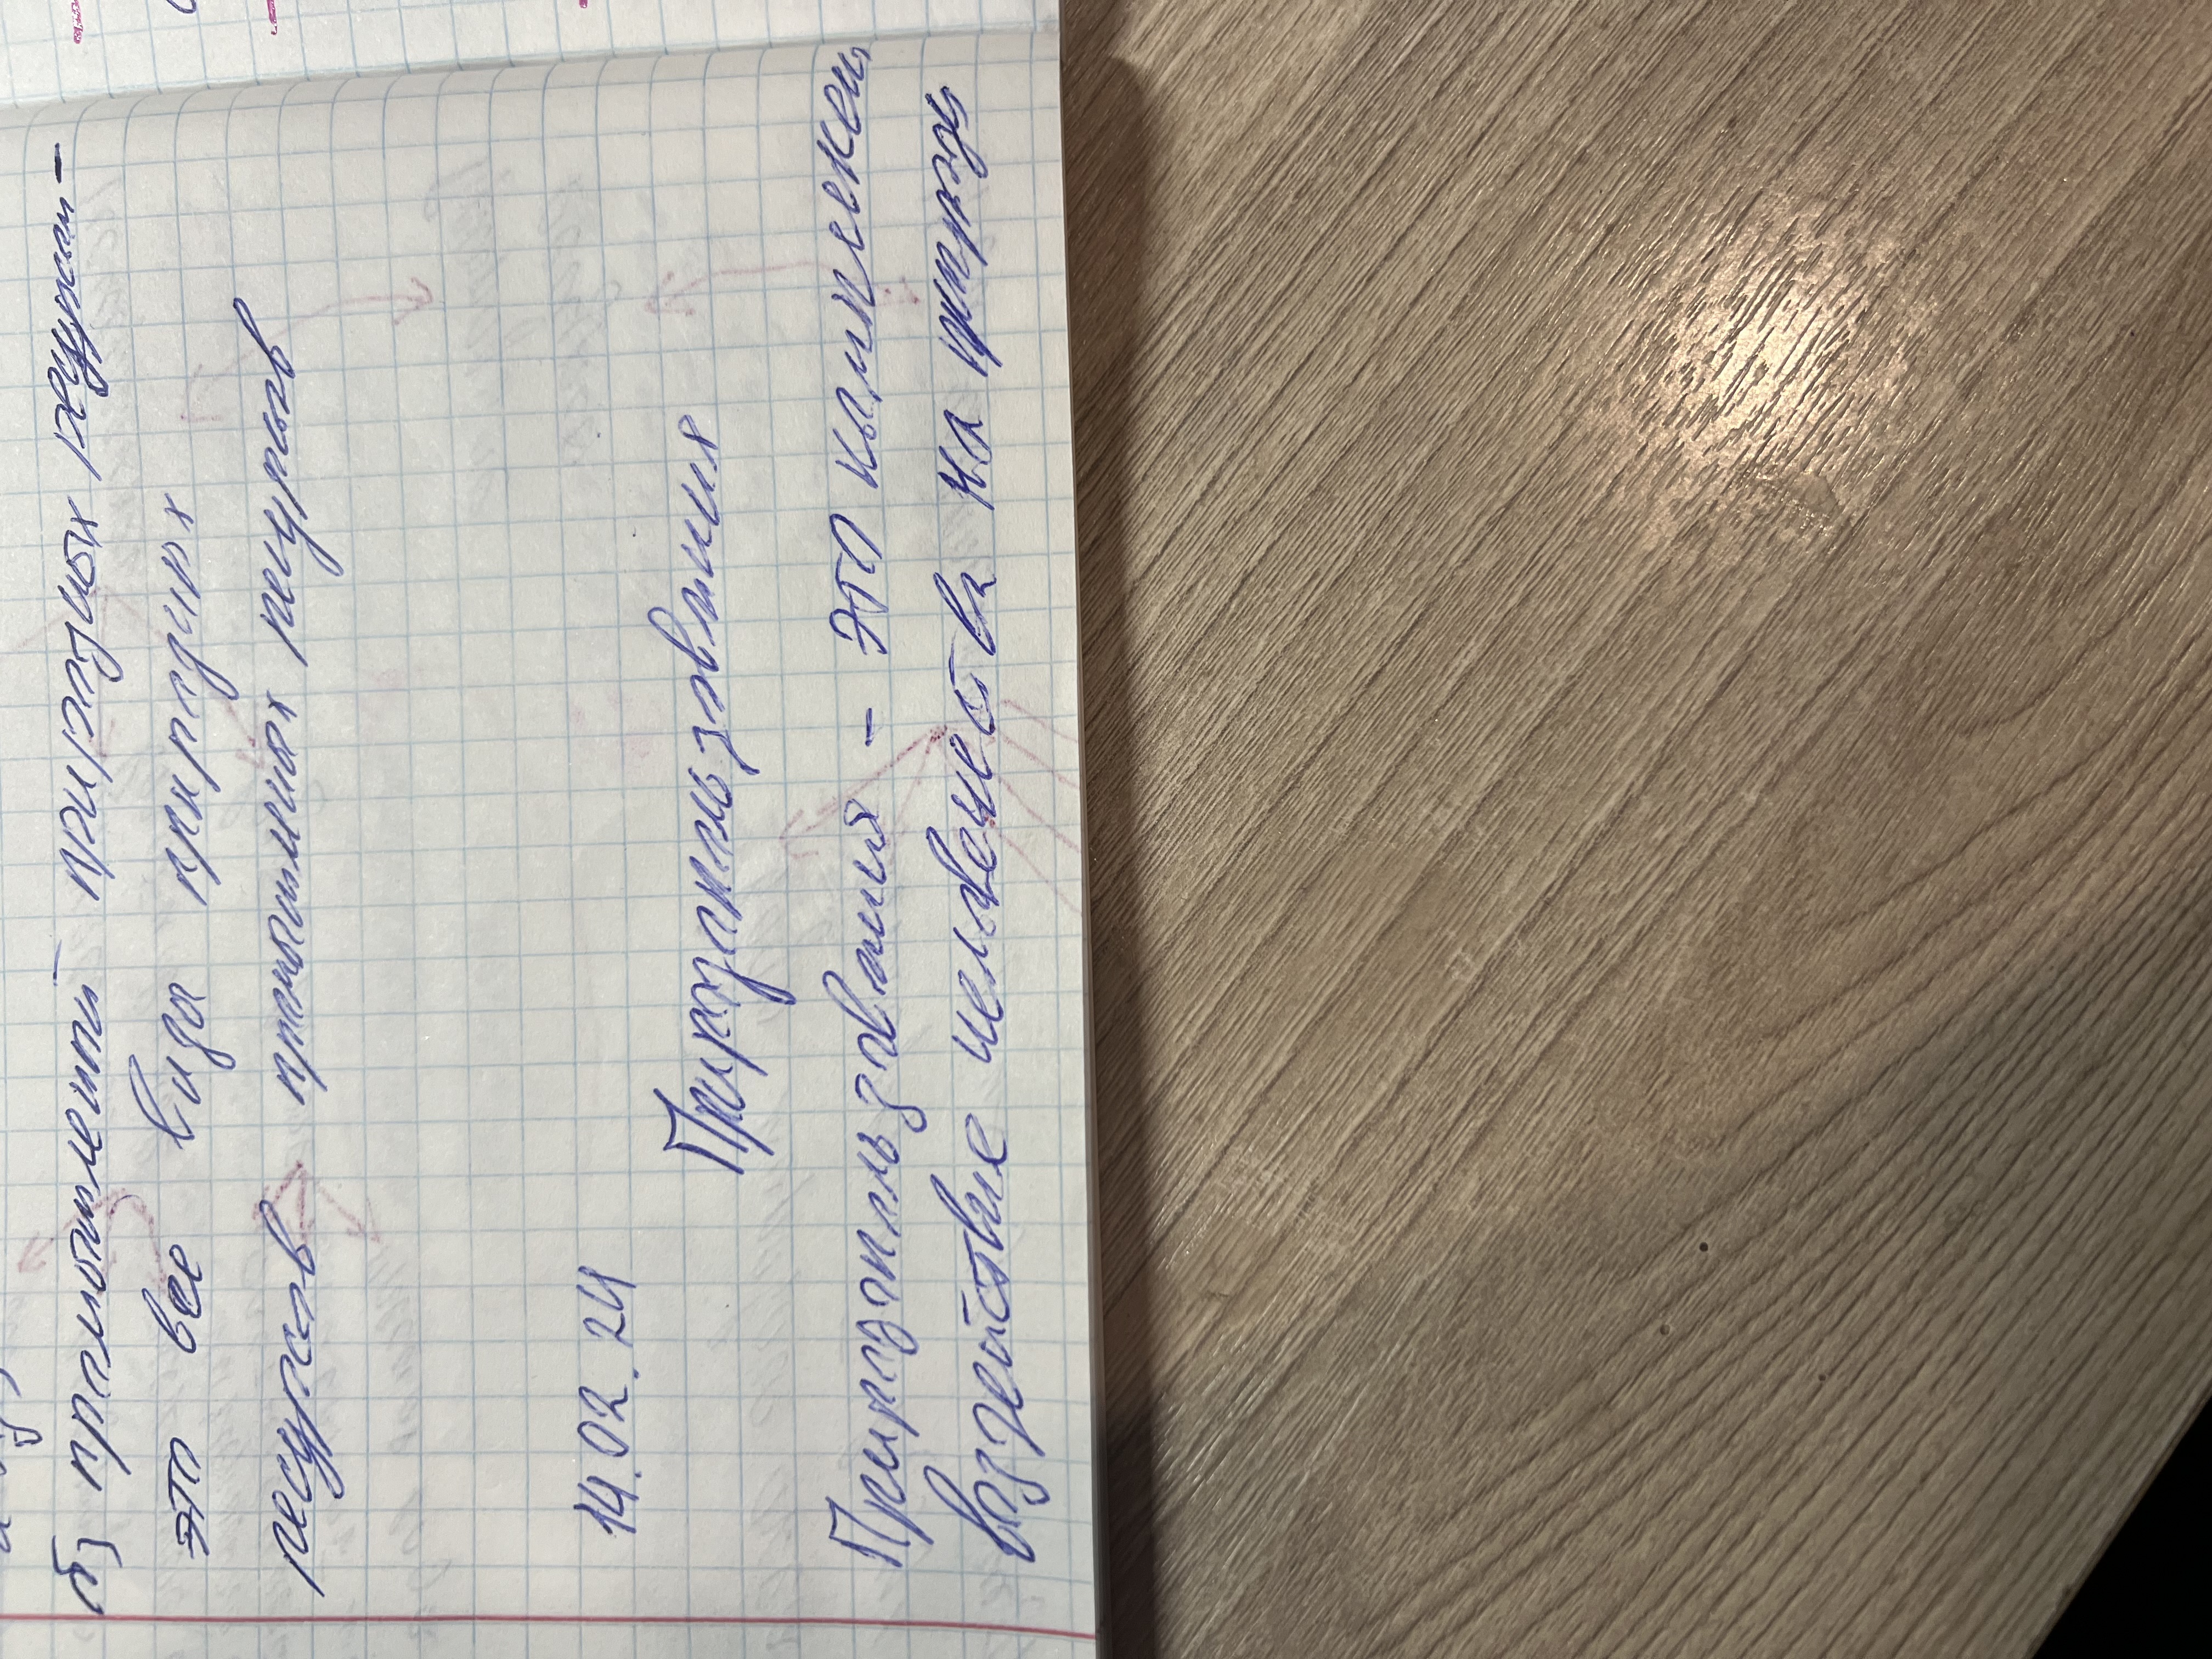 б) промышлены природных ресурсы -
это все виды природных
ресурсов промышлных ресурсов
14.02.24
Природопользования
Природопользования - это комплекс
воздействие человечества на природу